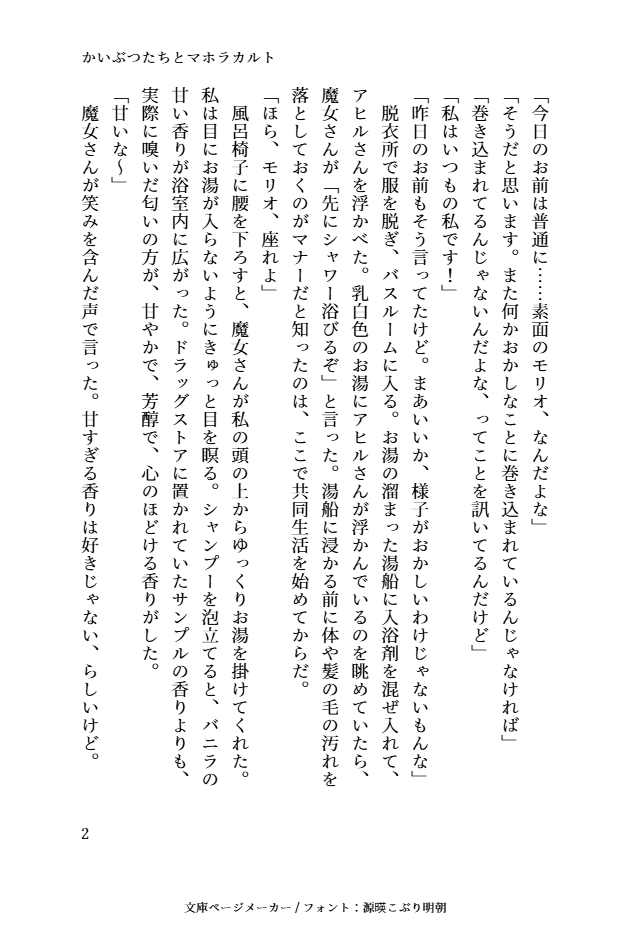 かいぶつたちとマホラカルト
「今日のお前は普通に……素面のモリオ、なんだよな」
「そうだと思います。また何かおかしなことに巻き込まれているんじゃなければ」
「巻き込まれてるんじゃないんだよな、ってことを訊いてるんだけど」
「私はいつもの私です！」
「昨日のお前もそう言ってたけど。まあいいか、様子がおかしいわけじゃないもんな」
　脱衣所で服を脱ぎ、バスルームに入る。お湯の溜まった湯船に入浴剤を混ぜ入れて、
アヒルさんを浮かべた。乳白色のお湯にアヒルさんが浮かんでいるのを眺めていたら、
魔女さんが「先にシャワー浴びるぞ」と言った。湯船に浸かる前に体や髪の毛の汚れを
落としておくのがマナーだと知ったのは、ここで共同生活を始めてからだ。
「ほら、モリオ、座れよ」
　風呂椅子に腰を下ろすと、魔女さんが私の頭の上からゆっくりお湯を掛けてくれた。
私は目にお湯が入らないようにきゅっと目を瞑る。シャンプーを泡立てると、バニラの
甘い香りが浴室内に広がった。ドラッグストアに置かれていたサンプルの香りよりも、
実際に嗅いだ匂いの方が、甘やかで、芳醇で、心のほどける香りがした。
「甘いな〜」
　魔女さんが笑みを含んだ声で言った。甘すぎる香りは好きじゃない、らしいけど。
2
文庫ページメーカー / フォント：源暎こぶり明朝